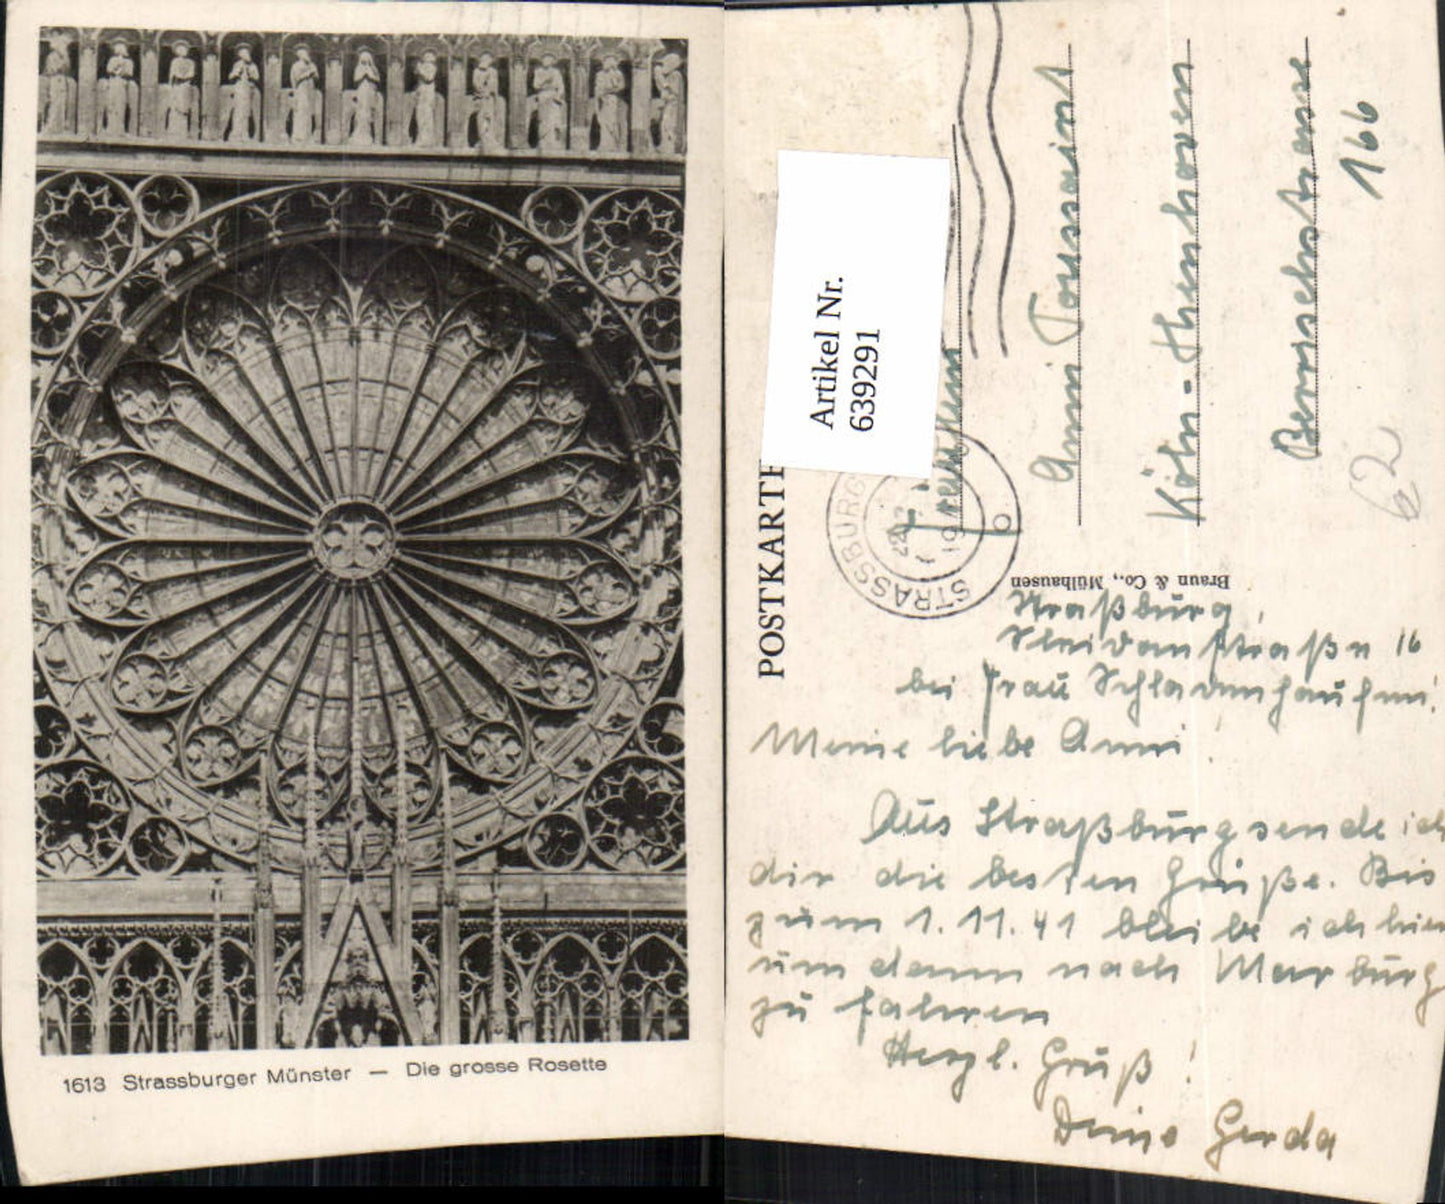 1613 Strassburger Münster — Die grosse Rosette
POSTKARTE
Artikel Nr.
639291
STRASSBURG
Fräulein
Anni Toussaint
Köln-Thenhoven
Bernsehstrasse
166
62
Braun & Co., Mülhausen
Straßburg,
Sleidanstraße 16
bei Frau Schladenhaufen!
Meine liebe Anni!
Aus Straßburg sende ich
dir die besten Grüße. Bis
zum 1.11.41 bleibe ich hier
um dann nach Marburg
zu fahren
Herzl. Gruß!
Deine Gerda